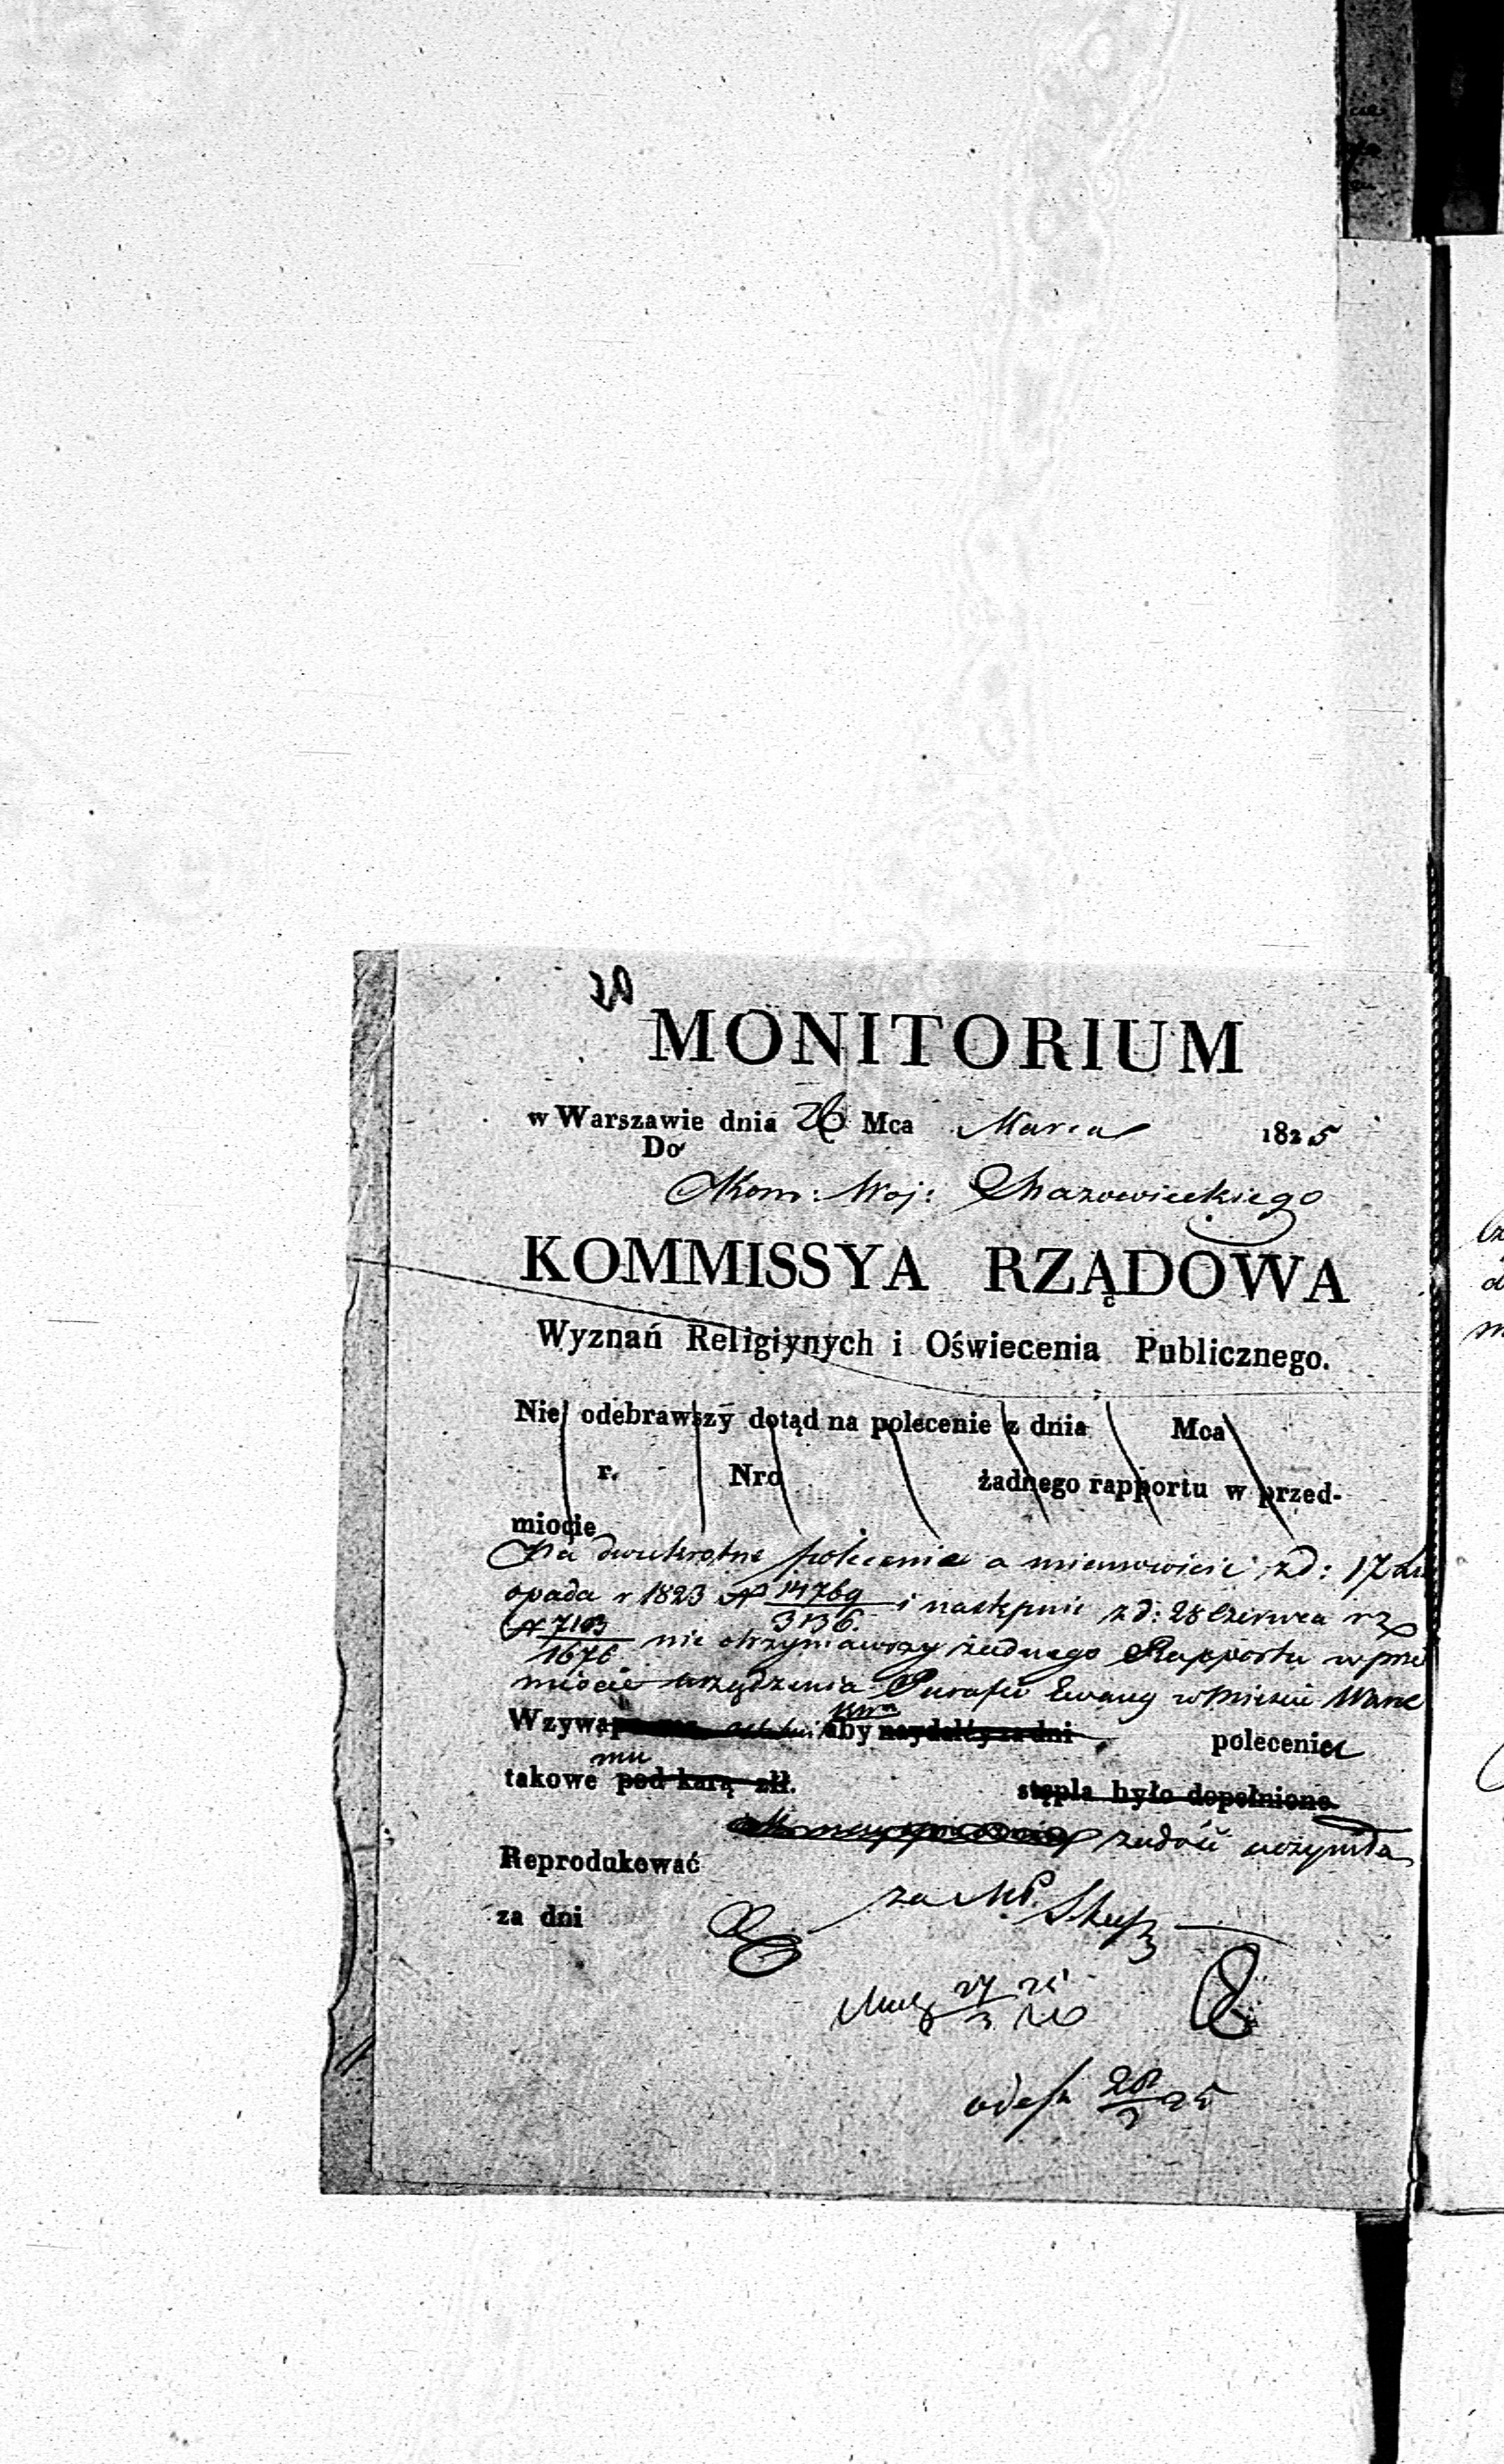 MONITORIUM
w Warszawie dnia 26 Mca Marca 1825
Do
Kom: Woj: Mazowieckiego
KOMMISSYA RZĄDOWA
Wyznań Religiynych i Oświecenia Publicznego.
Nie odebrawszy dotąd na polecenie z dnia Mca
r. Nro żadnego rapportu w przed-
miocie
Na dwukrotne polecenia a mianowicie z d: 17 Li
opada r 1823 N 14769/3136 i następnie z d: 28 Czerwca r z
N 7103/1676 nie otrzymawszy żadnego Rapportu w prze
miocie urządzenia Parafii Ewang w Mieście
Wzywa aby naydaléy za dni polecenia
mu
takowe pod karą złł. stępla było dopełnione
zadość uczyniła
Reprodukować
za dni
za MP.
27/3 25
odesł 28/3 25